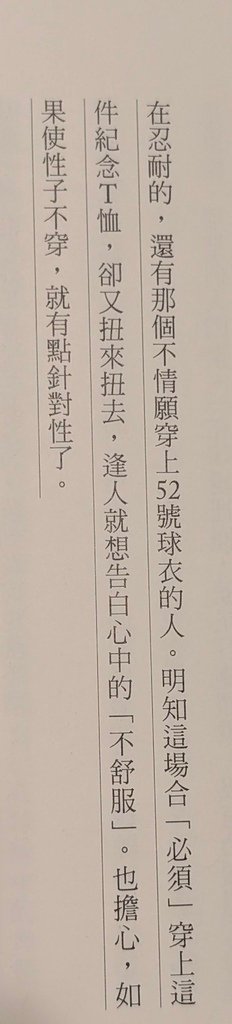 在忍耐的，還有那個不情願穿上52號球衣的人。明知這場合「必須」穿上這
件紀念T恤，卻又扭來扭去，逢人就想告白心中的「不舒服」。也擔心，如
果使性子不穿，就有點針對性了。